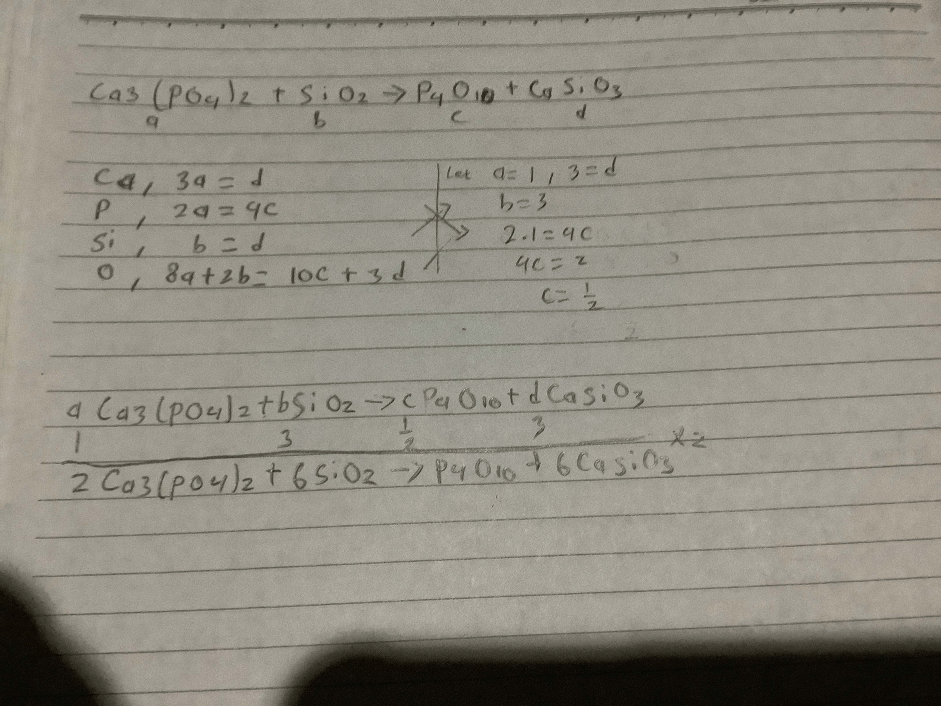 Ca3 (PO4)2 + SiO2 → P4O10 + CaSiO3
a b c d
Ca, 3a = d
P, 2a = 4c
Si, b = d
O, 8a+2b= 10c + 3d
Let a=1, 3=d
b=3
2.1=4c
4c=2
c=1/2
a Ca3(PO4)2+bSiO2→cP4O10+dCaSiO3
1 3 1/2 3 x2
2 Ca3(PO4)2 + 6SiO2 → P4O10 + 6CaSiO3